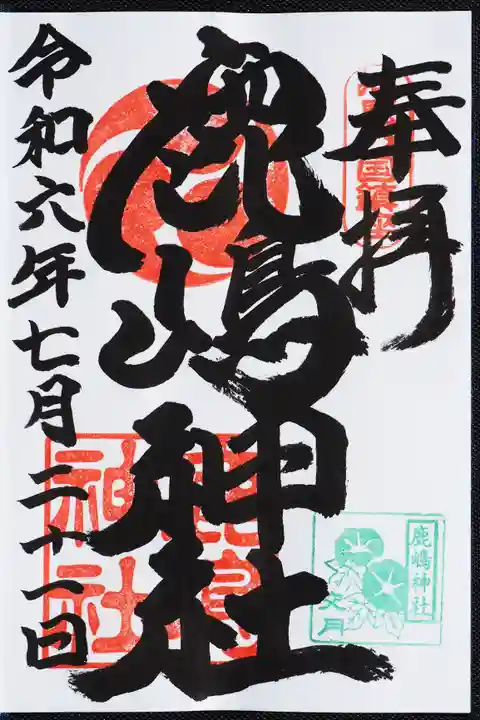 奉拝
鹿嶋神社
令和六年七月二十一日
鹿島
神社
鹿嶋神社
文月